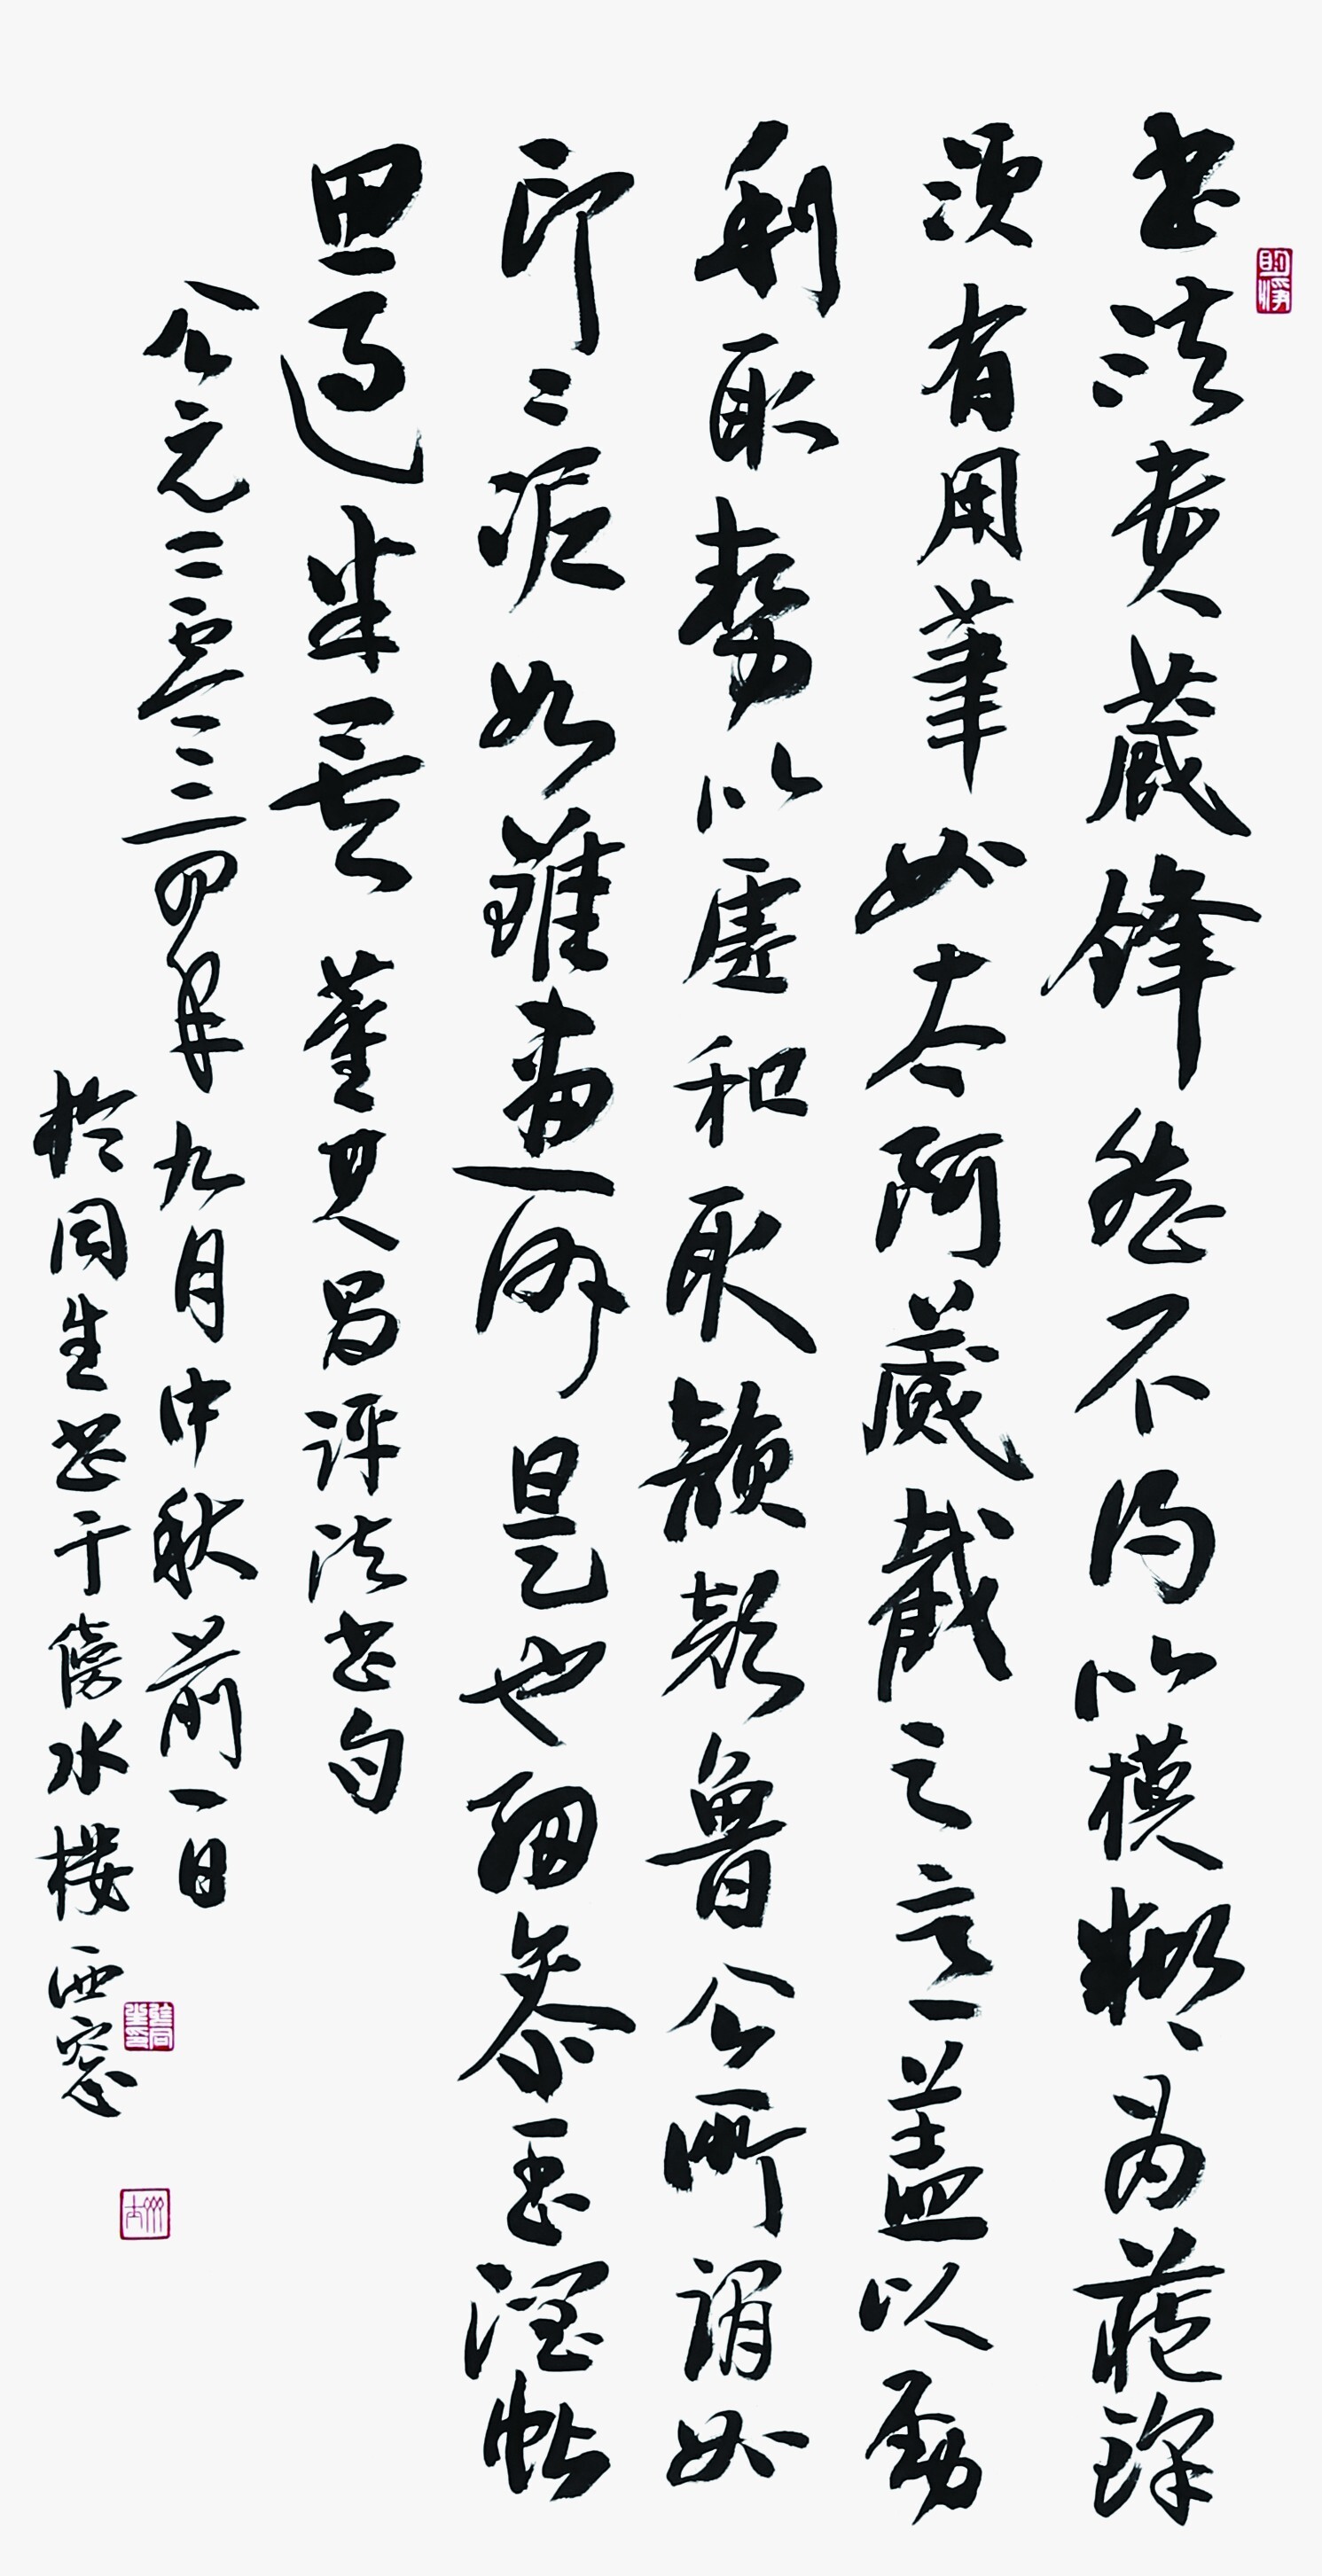 書法貴藏鋒然不得以模糊為藏鋒
須有用筆如太阿藏截之意蓋以勁
利取勢以虛和取韻顏魯公所謂如
印二泥如錐畫沙是也細參玉潤帖
思過半矣 董其昌評法書句
公元二零二四年九月中秋前一日
於同生書于傍水樓西窓